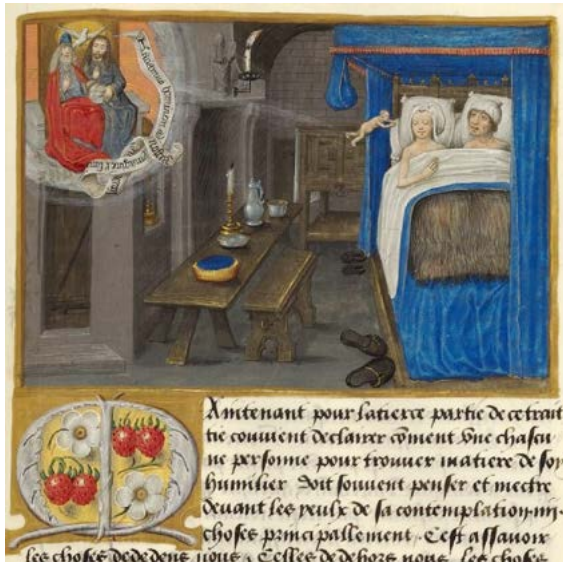 faciamus hominem ad
ymaginem
Aintenant pour la tierce partie de ce trait
tie couuient declairer cõment vne chascu
ne personne pour trouuer matiere de soy
humilier doit souuent penser et mectre
deuant les yeulx de sa contemplation .iiii.
choses principallement . Cest assauoir
les choses dedens nous . Celles dehors nous . les choses